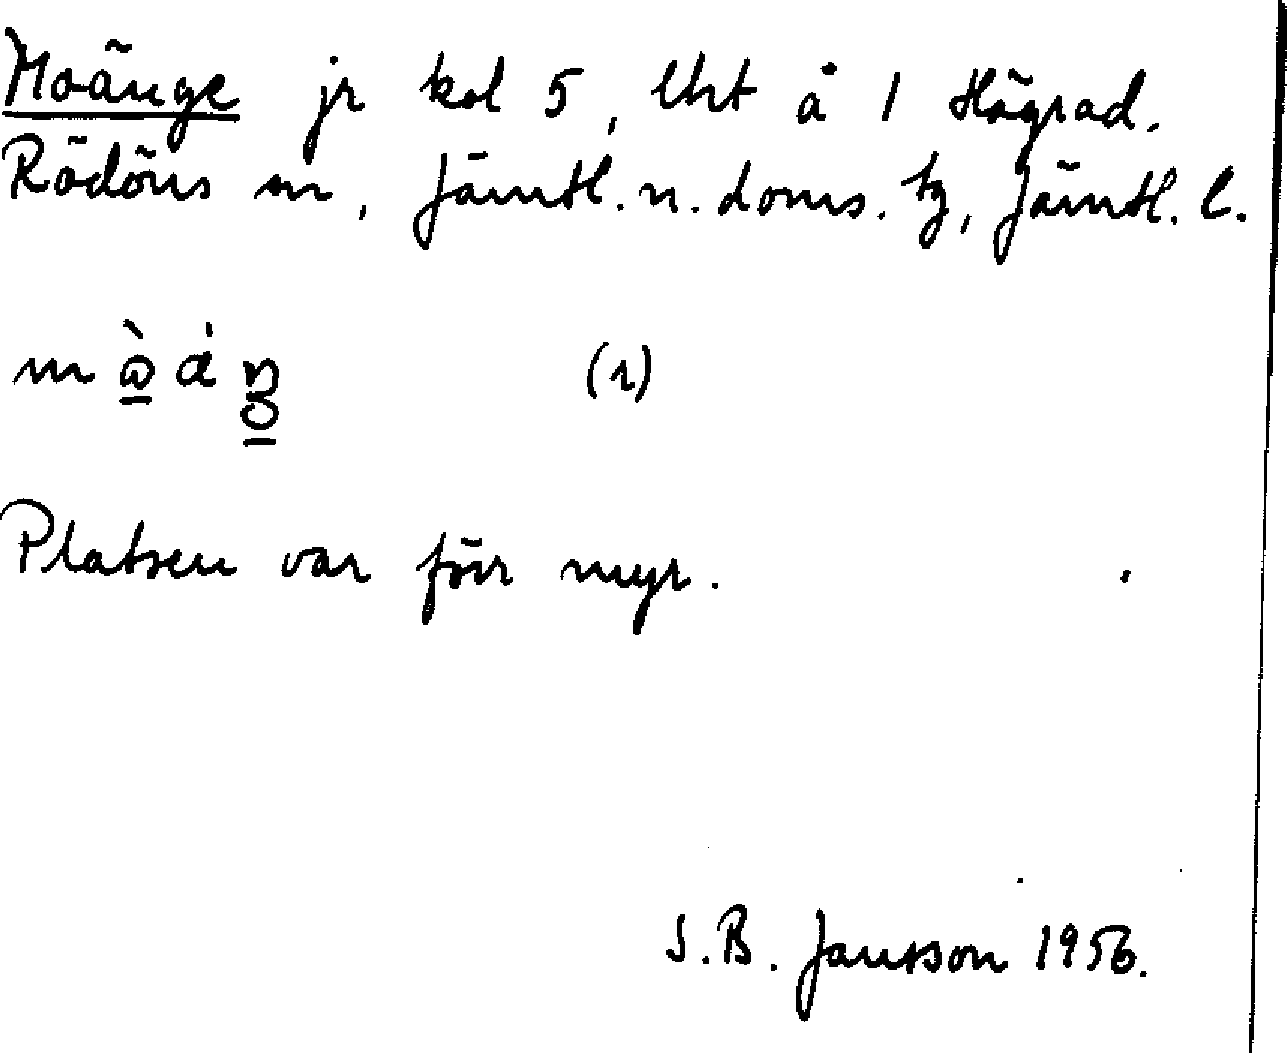 Moänge jr kol 5, Uht å 1 Högrad.
Rödöns sn, Jämtl. n. doms. tg, Jämtl. l.
(1)
Platsen var förr myr.
S.B. Jansson 1956.